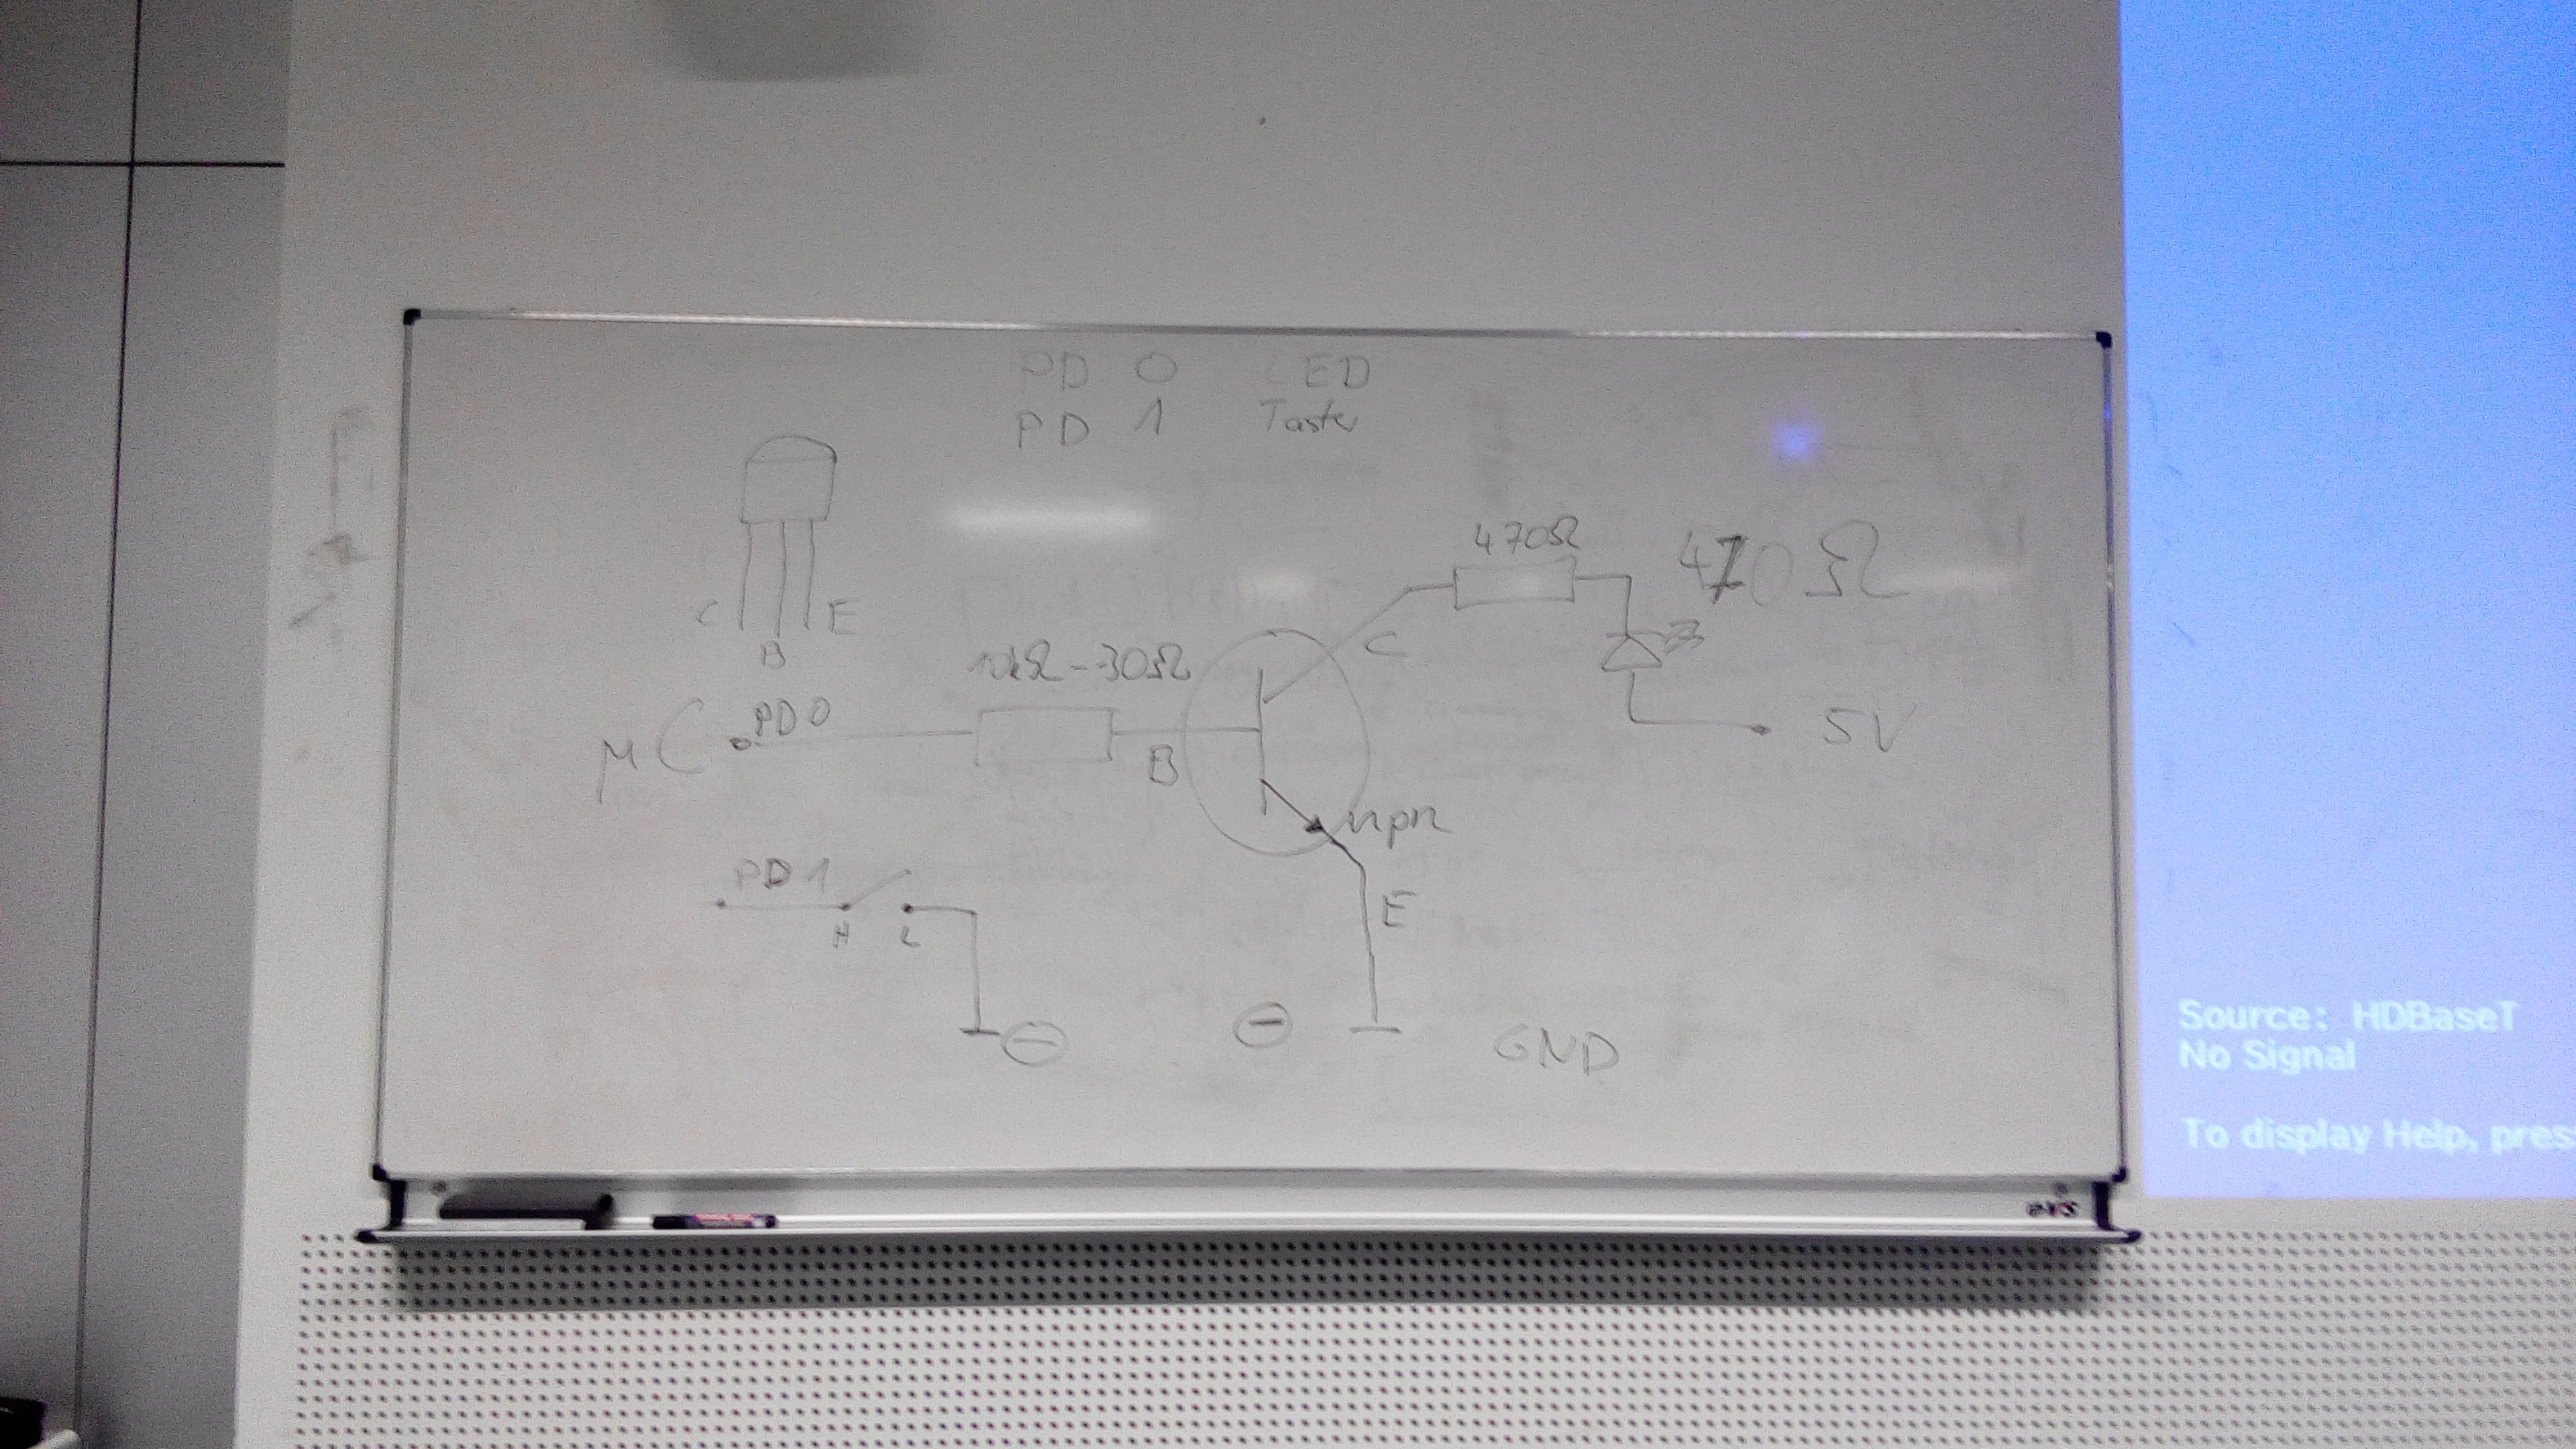 PD 0 LED
PD 1 Taster
470Ω
470Ω
C
E
B
C
10kΩ-30Ω
μC
PD0
B
5V
npn
PD1
H
L
E
GND
Source: HDBaseT
No Signal
To display Help, pres
evs